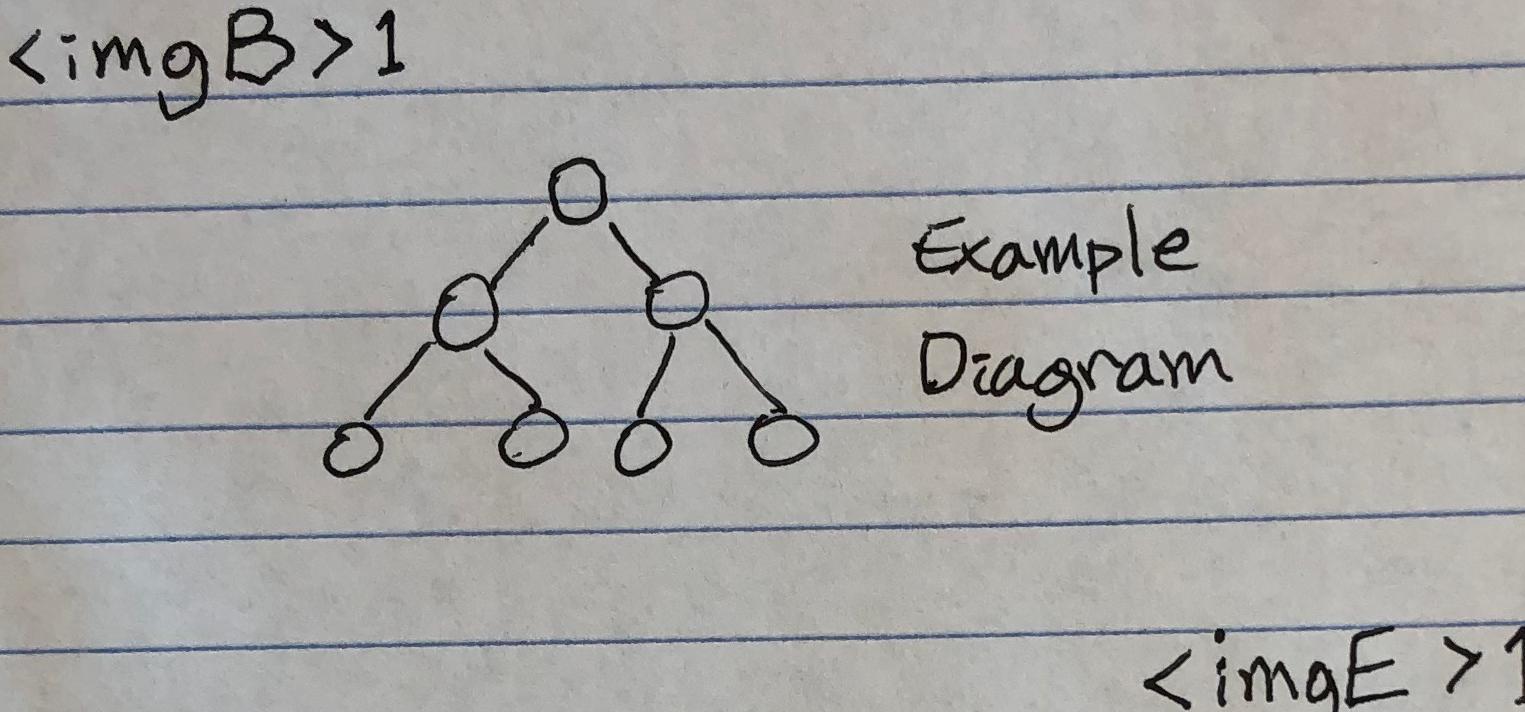 <imgB>1
Example
Diagram
<imgE>1